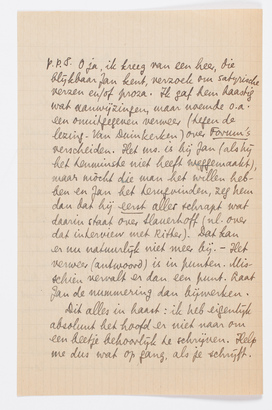 P.P.S. O ja, ik kreeg van een heer, die
blijkbaar Jan kent, verzoek om satyrische
verzen en/of proza. Ik gaf hem haastig
wat aanwijzingen, maar noemde o.a.
een onuitgegeven verweer (tegen de
lezing-Van Duinkerken) over Forum's
verscheiden. Het ms. is bij Jan (als hij
het tenminste niet heeft weggemaakt),
maar mócht die man het willen heb-
ben en Jan het terugvinden, zeg hem
dan dat hij eerst alles schrapt wat
daarin staat over Slauerhoff (nl. over
dat interview met Ritter). Dat kan
er nu natuurlijk niet meer bij. – Het
verweer (antwoord) is in punten. Mis-
schien vervalt er dan een punt. Laat
Jan de nummering dan bijwerken.
Dit alles in haast: ik heb eigenlijk
absoluut het hoofd er niet naar om
een beetje behoorlijk te schrijven. Help
me dus wat op gang, als je schrijft.